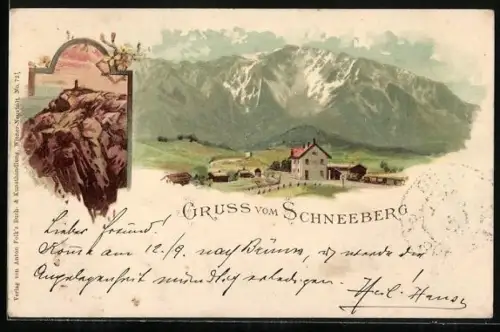 Verlag von Anton Folk's Buch- & Kunsthandlung, Wiener-Neustadt. No. 721
GRUSS VOM SCHNEEBERG
Lieber Freund!
Komme am 12./9. nach Brünn, werde die
Angelegenheit mündlich erledigen. Heil! Hans